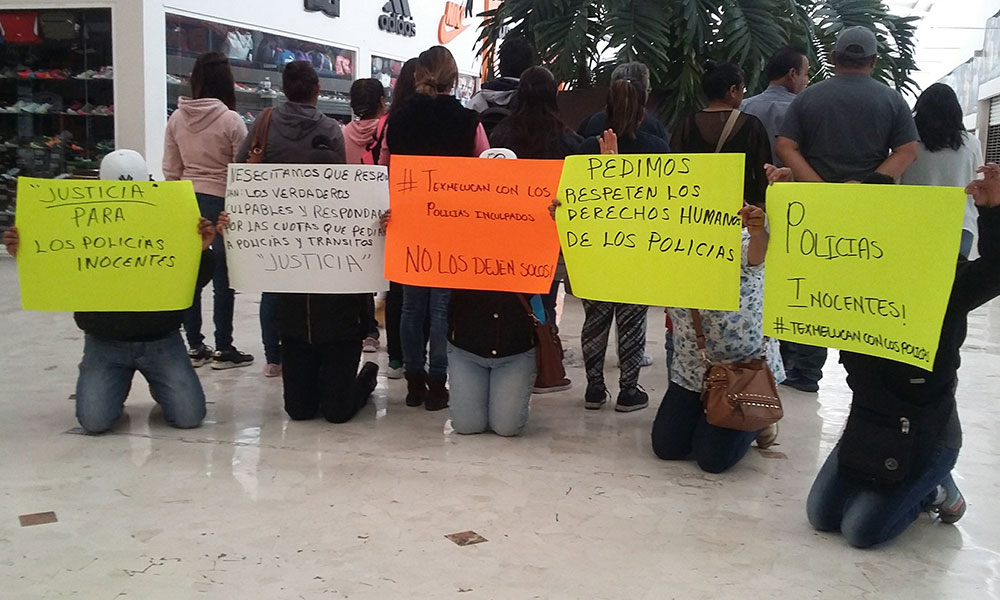 adidas
"JUSTICIA"
PARA
LOS POLICÍAS
INOCENTES
NESECITAMOS QUE RESPON
DAN: LOS VERDADEROS
CULPABLES Y RESPONDAN
POR LAS CUOTAS QUE PEDIA
A POLICÍAS Y TRANSITOS
"JUSTICIA"
# TEXMELUCAN CON LOS
POLICIAS INCULPADOS
NO LOS DEJEN SOLOS!
PEDIMOS
RESPETEN LOS
DERECHOS HUMANOS
DE LOS POLICIAS
POLICÍAS
INOCENTES!
#TEXMELUCAN CON LOS POLICIAS